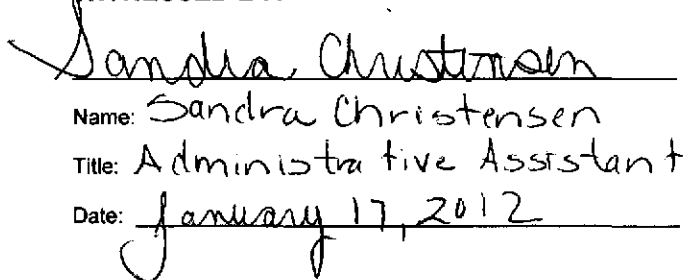 Sandra Christensen
Name: Sandra Christensen
Title: Administrative Assistant
Date: January 17, 2012